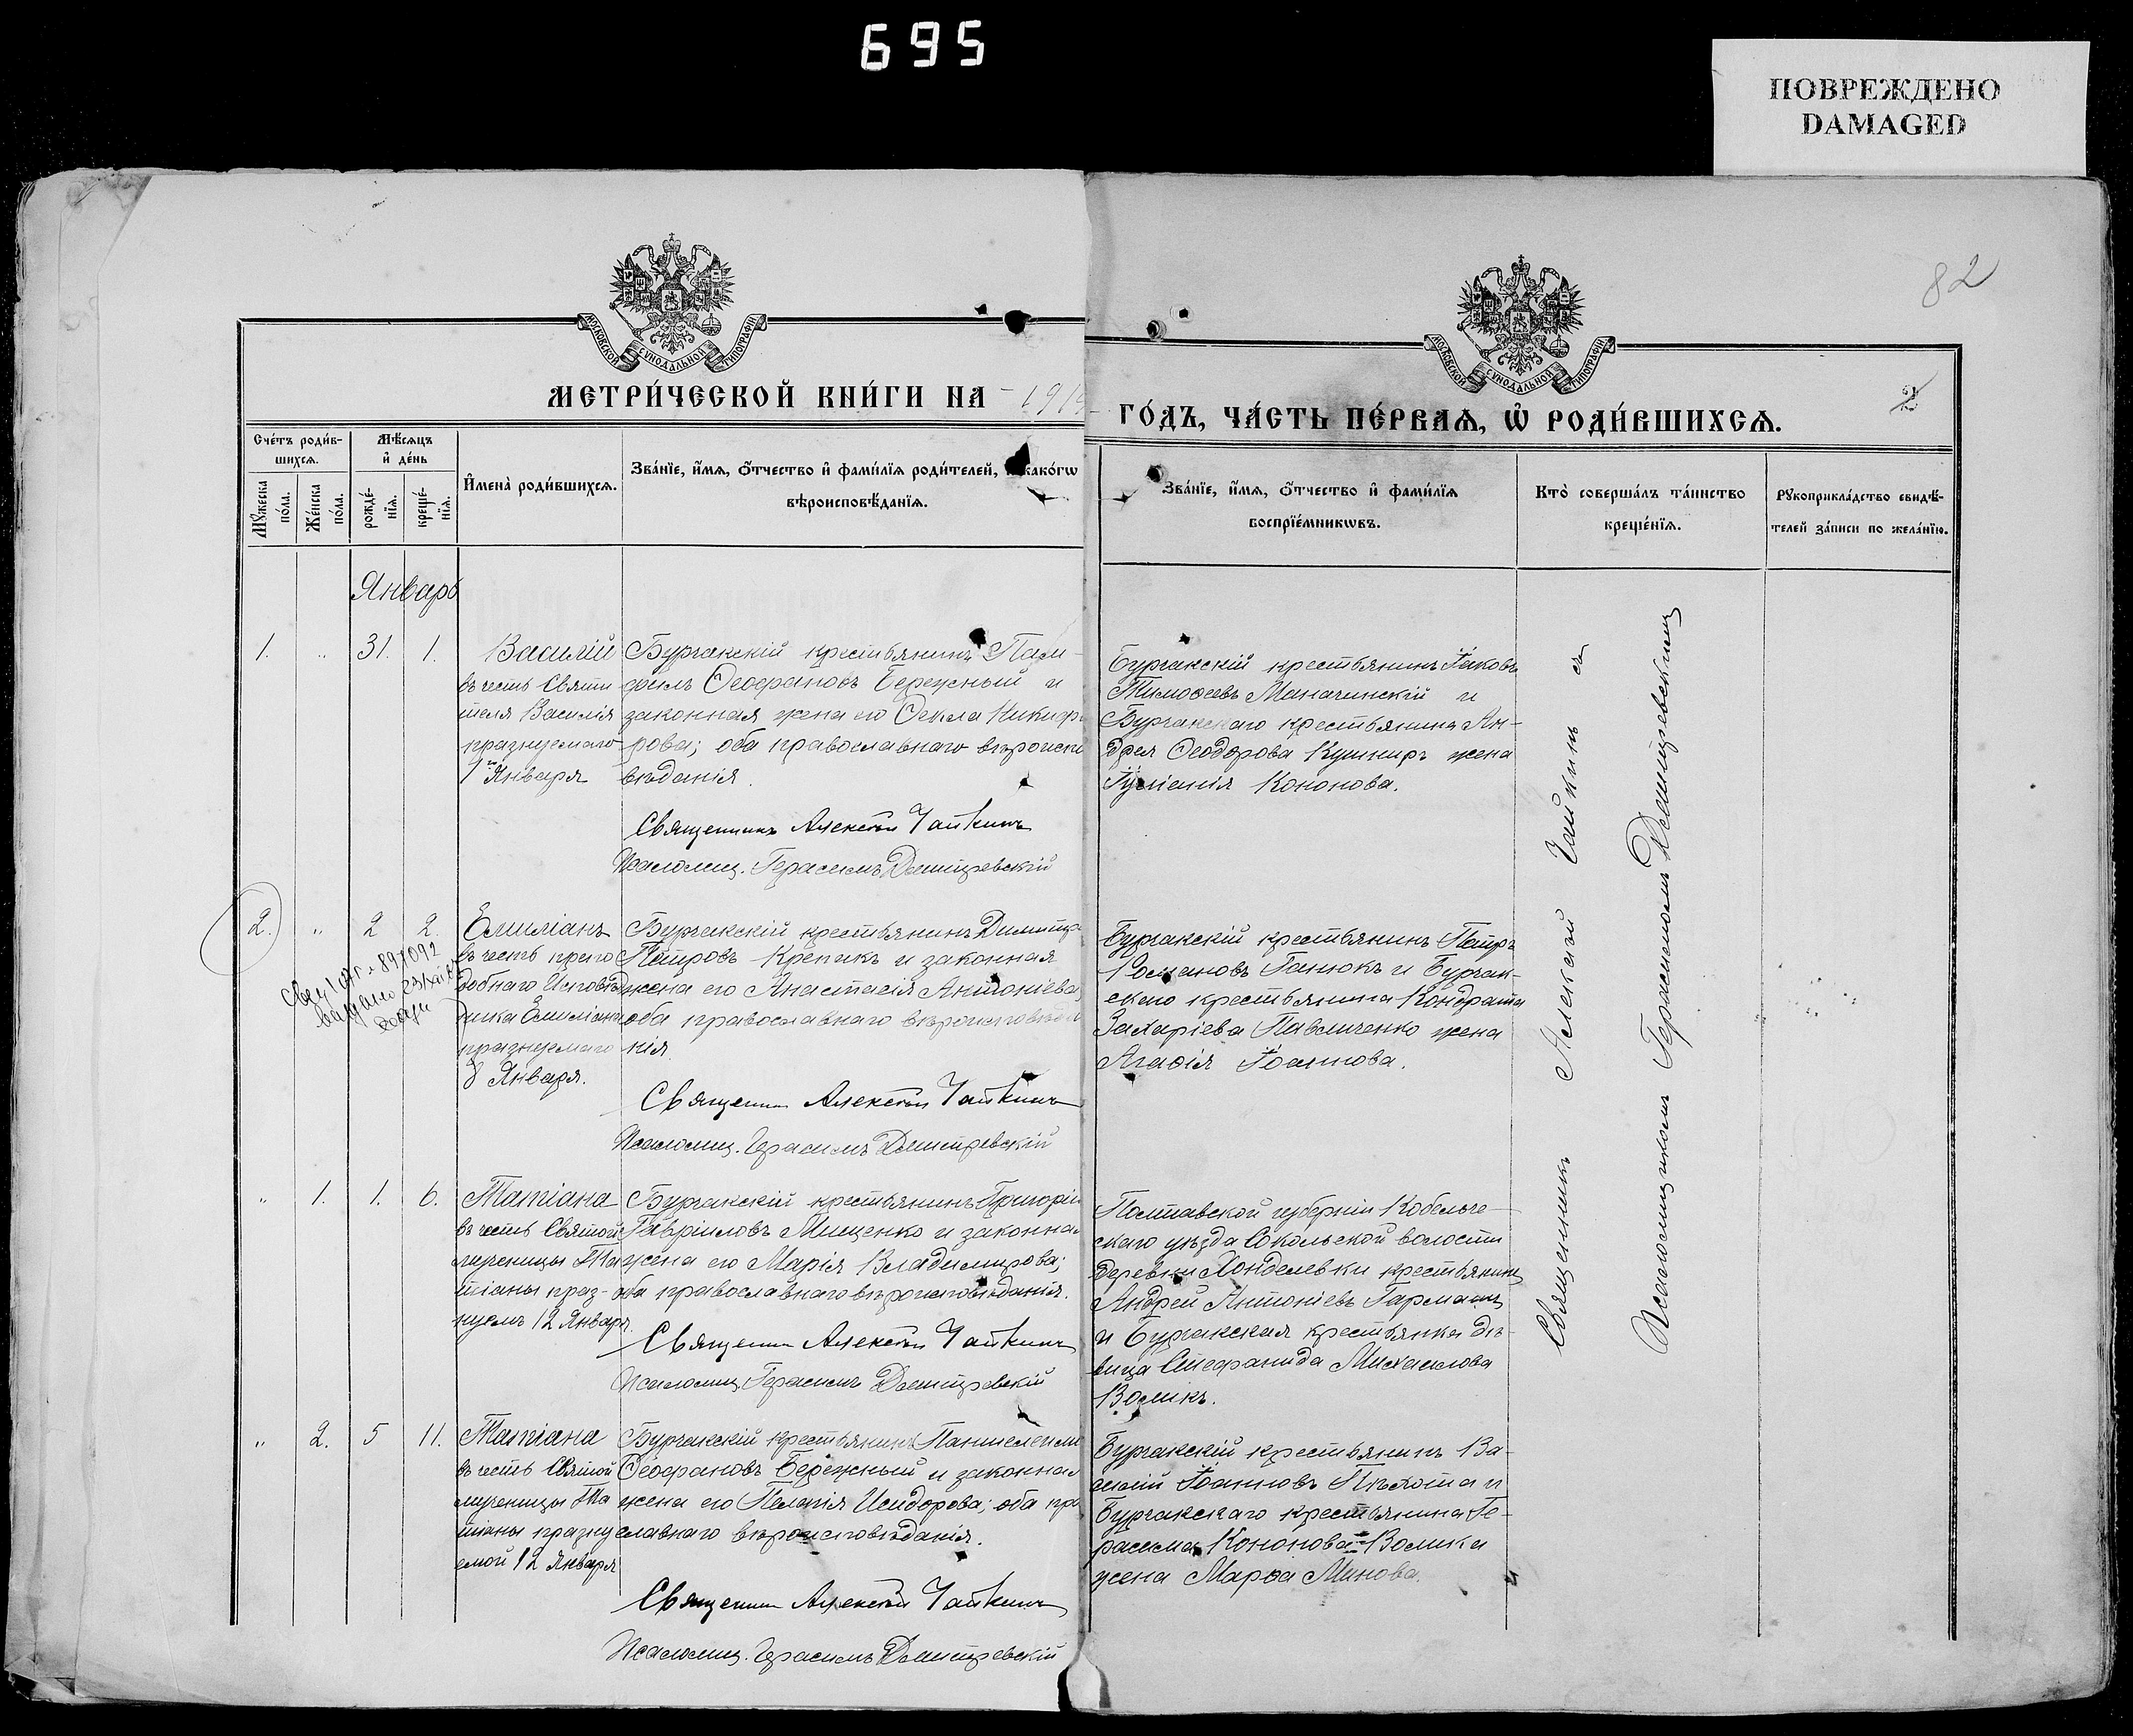 695
ПОВРЕЖДЕНО
DAMAGED
82
МОСКОВСКОЙ СѴНОДАЛЬНОЙ ТИПОГРАФІИ
МОСКОВСКОЙ СѴНОДАЛЬНОЙ ТИПОГРАФІИ
МЕТРИ́ЧЕСКОЙ КНИ́ГИ НА
ГО́ДЪ, ЧА́СТЬ ПЕ́РВАѦ, Ѽ РОДИ́ВШИХСѦ.
2
Сче́тъ роди́в-
шихсѧ.
Мѣ́сѧцъ
и҆ де́нь
Мꙋ́жеска
по́ла.
Же́нска
по́ла.
рожде́-
нїѧ.
креще́-
нїѧ.
И҆мена̀ роди́вшихсѧ.
Зва́нїе, и҆́мѧ, ѻ҆́тчество и҆ фами́лїѧ роди́телей, и҆ како́гѡ
вѣроисповѣ́данїѧ.
Зва́нїе, и҆́мѧ, ѻ҆́тчество и҆ фами́лїѧ
воспрїе́мникѡвъ.
Кто̀ соверша́лъ та́инство
креще́нїѧ.
Рꙋкоприкла́дство свидѣ́-
телей за́писи по жела́нїю.
Январь
1. " 31. 1.
Василій
въ честь Святи
теля Василія
празнуемаго
1го Января
Бурчакскій крестьянинъ Пам-
филъ Ѳеофановъ Бережный и
законная жена его Ѳекла Никифо
рова; оба православнаго вѣроиспо
вѣданія.
Священникъ Алексѣй Чайкинъ
Псаломщ. Герасимъ Дмитревскій
Бурчакскій крестьянинъ Іаковъ
Тимоѳеевъ Маначинскій и
Бурчакскаго крестьянина Ан-
дрея Ѳеодорова Кушниръ жена
Іуліанія Кононова.
2. " 2 2.
Емиліанъ
въ честь препо
добнаго Исповѣд
ника Емиліана
празнуемаго
8 Января.
Бурчакскій крестьянинъ Димитрі
Петровъ Крепакъ и законная
жена его Анастасія Антоніева,
оба православнаго вѣроисповѣда
нія.
Священник Алексѣй Чайкинъ
Псаломщ. Герасимъ Дмитревскій
Бурчакскій крестьянинъ Петръ
Романовъ Ганюкъ и Бурчак-
скаго крестьянина Кондрата
Захаріева Павличенко жена
Агаѳія Іоаннова.
897092
" 1. 1. 6.
Татіана
въ честь Святой
мученицы Та
тіаны праз-
нуемъ 12 Января.
Бурчакскій крестьянинъ Григорій
Гавріиловъ Мищенко и законная
жена его Марія Владимирова;
оба православнаго вѣроисповѣданія.
Священник Алексѣй Чайкинъ
Псаломщ. Герасимъ Дмитревскій
Полтавской губерніи Кобеляче-
скаго уѣзда Сокольской волости
деревни крестьянинъ
Андрей Антоніевъ Гармашъ
и Бурчакская крестьянка дѣ-
вица Стефанида Михаилова
Воликъ.
" 2. 5 11.
Татіана
въ честь Святой
мученицы Та
тіаны празну
емой 12 Января
Бурчакскій крестьянинъ Пантелеимо
Ѳеофановъ Бережный и законная
жена его Пелагія Исидорова; оба пра
славнаго вѣроисповѣданія.
Священник Алексѣй Чайкинъ
Псаломщ. Герасимъ Дмитревскій
Бурчакскій крестьянинъ Ва-
силій Іоанновъ Пѣхота и
Бурчакскаго крестьянина Ге-
расима Кононова Волика
жена Марѳа Минова.
Священникъ Алексѣй Чайкинъ съ
Псаломщикомъ Герасимомъ Дмитревскимъ